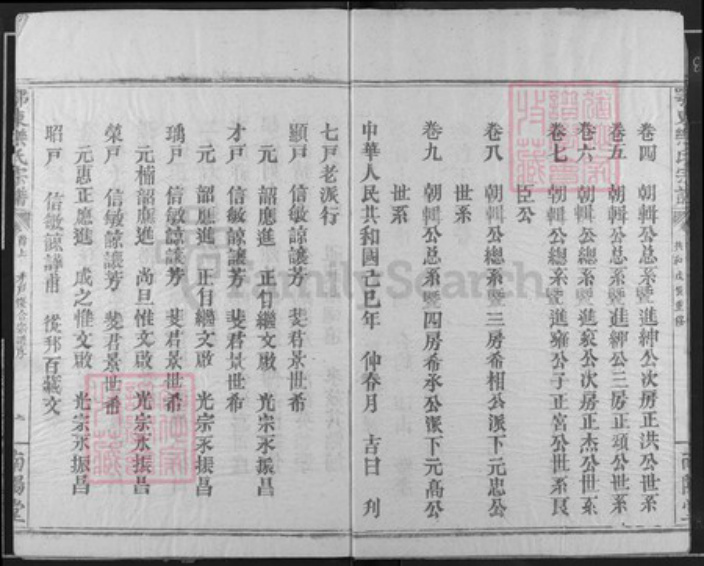 卷四　朝輯公总系暨進紳公次房正洪公世系
卷五　朝輯公总系暨進紳公三房正頌公世系
卷六　朝輯公總系暨進袞公次房正杰公世系
卷七　朝輯公總系暨進雍公子正宫公世系良
臣公
卷八　朝輯公總系暨三房希相公派下元忠公
世系
卷九　朝輯公总系暨四房希承公派下元高公
世系
中華人民共和國己巳年　仲春月　吉日　刋
七戸老派行
顯戸　信敏諒讓芳　斐君景世希
元　韶應進　正自繼文啟　光宗永振昌
才戸　信敏諒讓芳　斐君景世希
元　韶應進　正自繼文啟　光宗永振昌
瑀戸　信敏諒讓芳　斐君景世希
元楠韶應進　尚旦惟文啟　光宗永振昌
榮戸　信敏諒讓芳　斐君景世希
元惠正應進　成之惟文啟　光宗永振昌
昭戸　信敏諒讓甫　從邦百文
宗譜
首上
南陽堂
FamilySearch